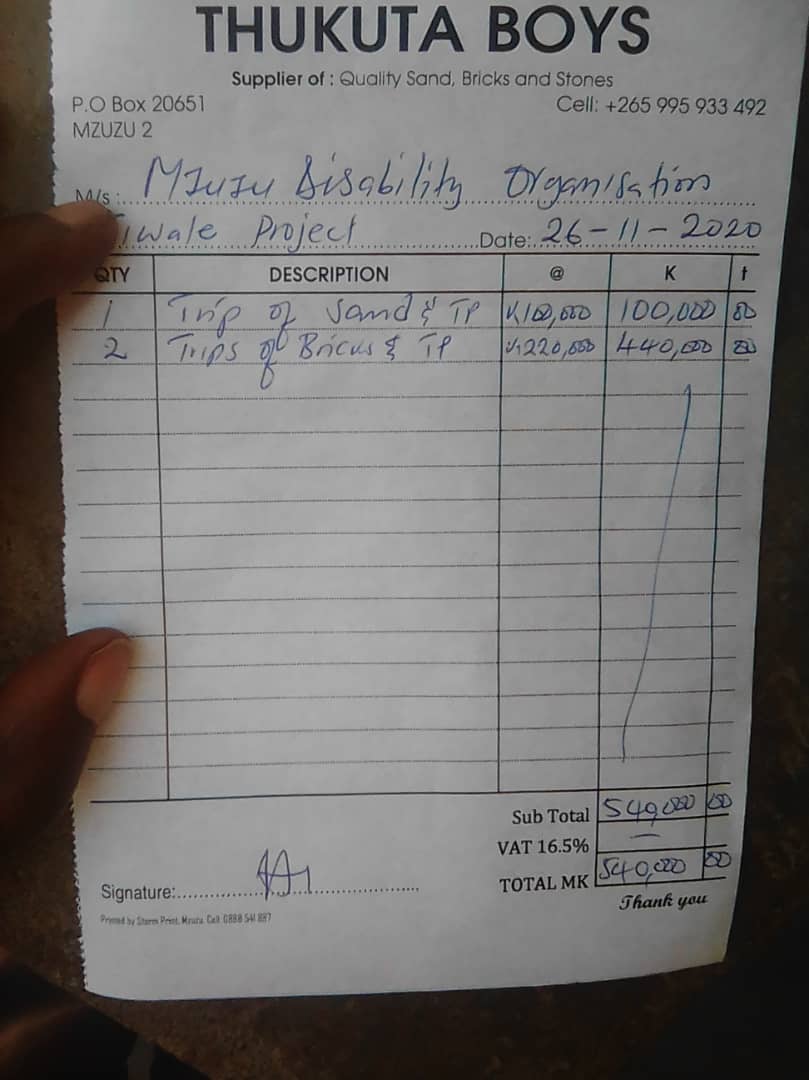 THUKUTA BOYS
Supplier of : Quality Sand, Bricks and Stones
P.O Box 20651 Cell: +265 995 933 492
MZUZU 2
M/s : Mzuzu Disability Organisation
iwale Project Date: 26-11-2020
QTY DESCRIPTION @ K t
1 Trip of Sand & TP K100,000 100,000 00
2 Trips of Bricks & TP K220,000 440,000 00
Sub Total 540,000 00
VAT 16.5% —
TOTAL MK 540,000 00
Signature:
Thank you
Printed by Storm Print, Mzuzu. Cell: 0888 541 887